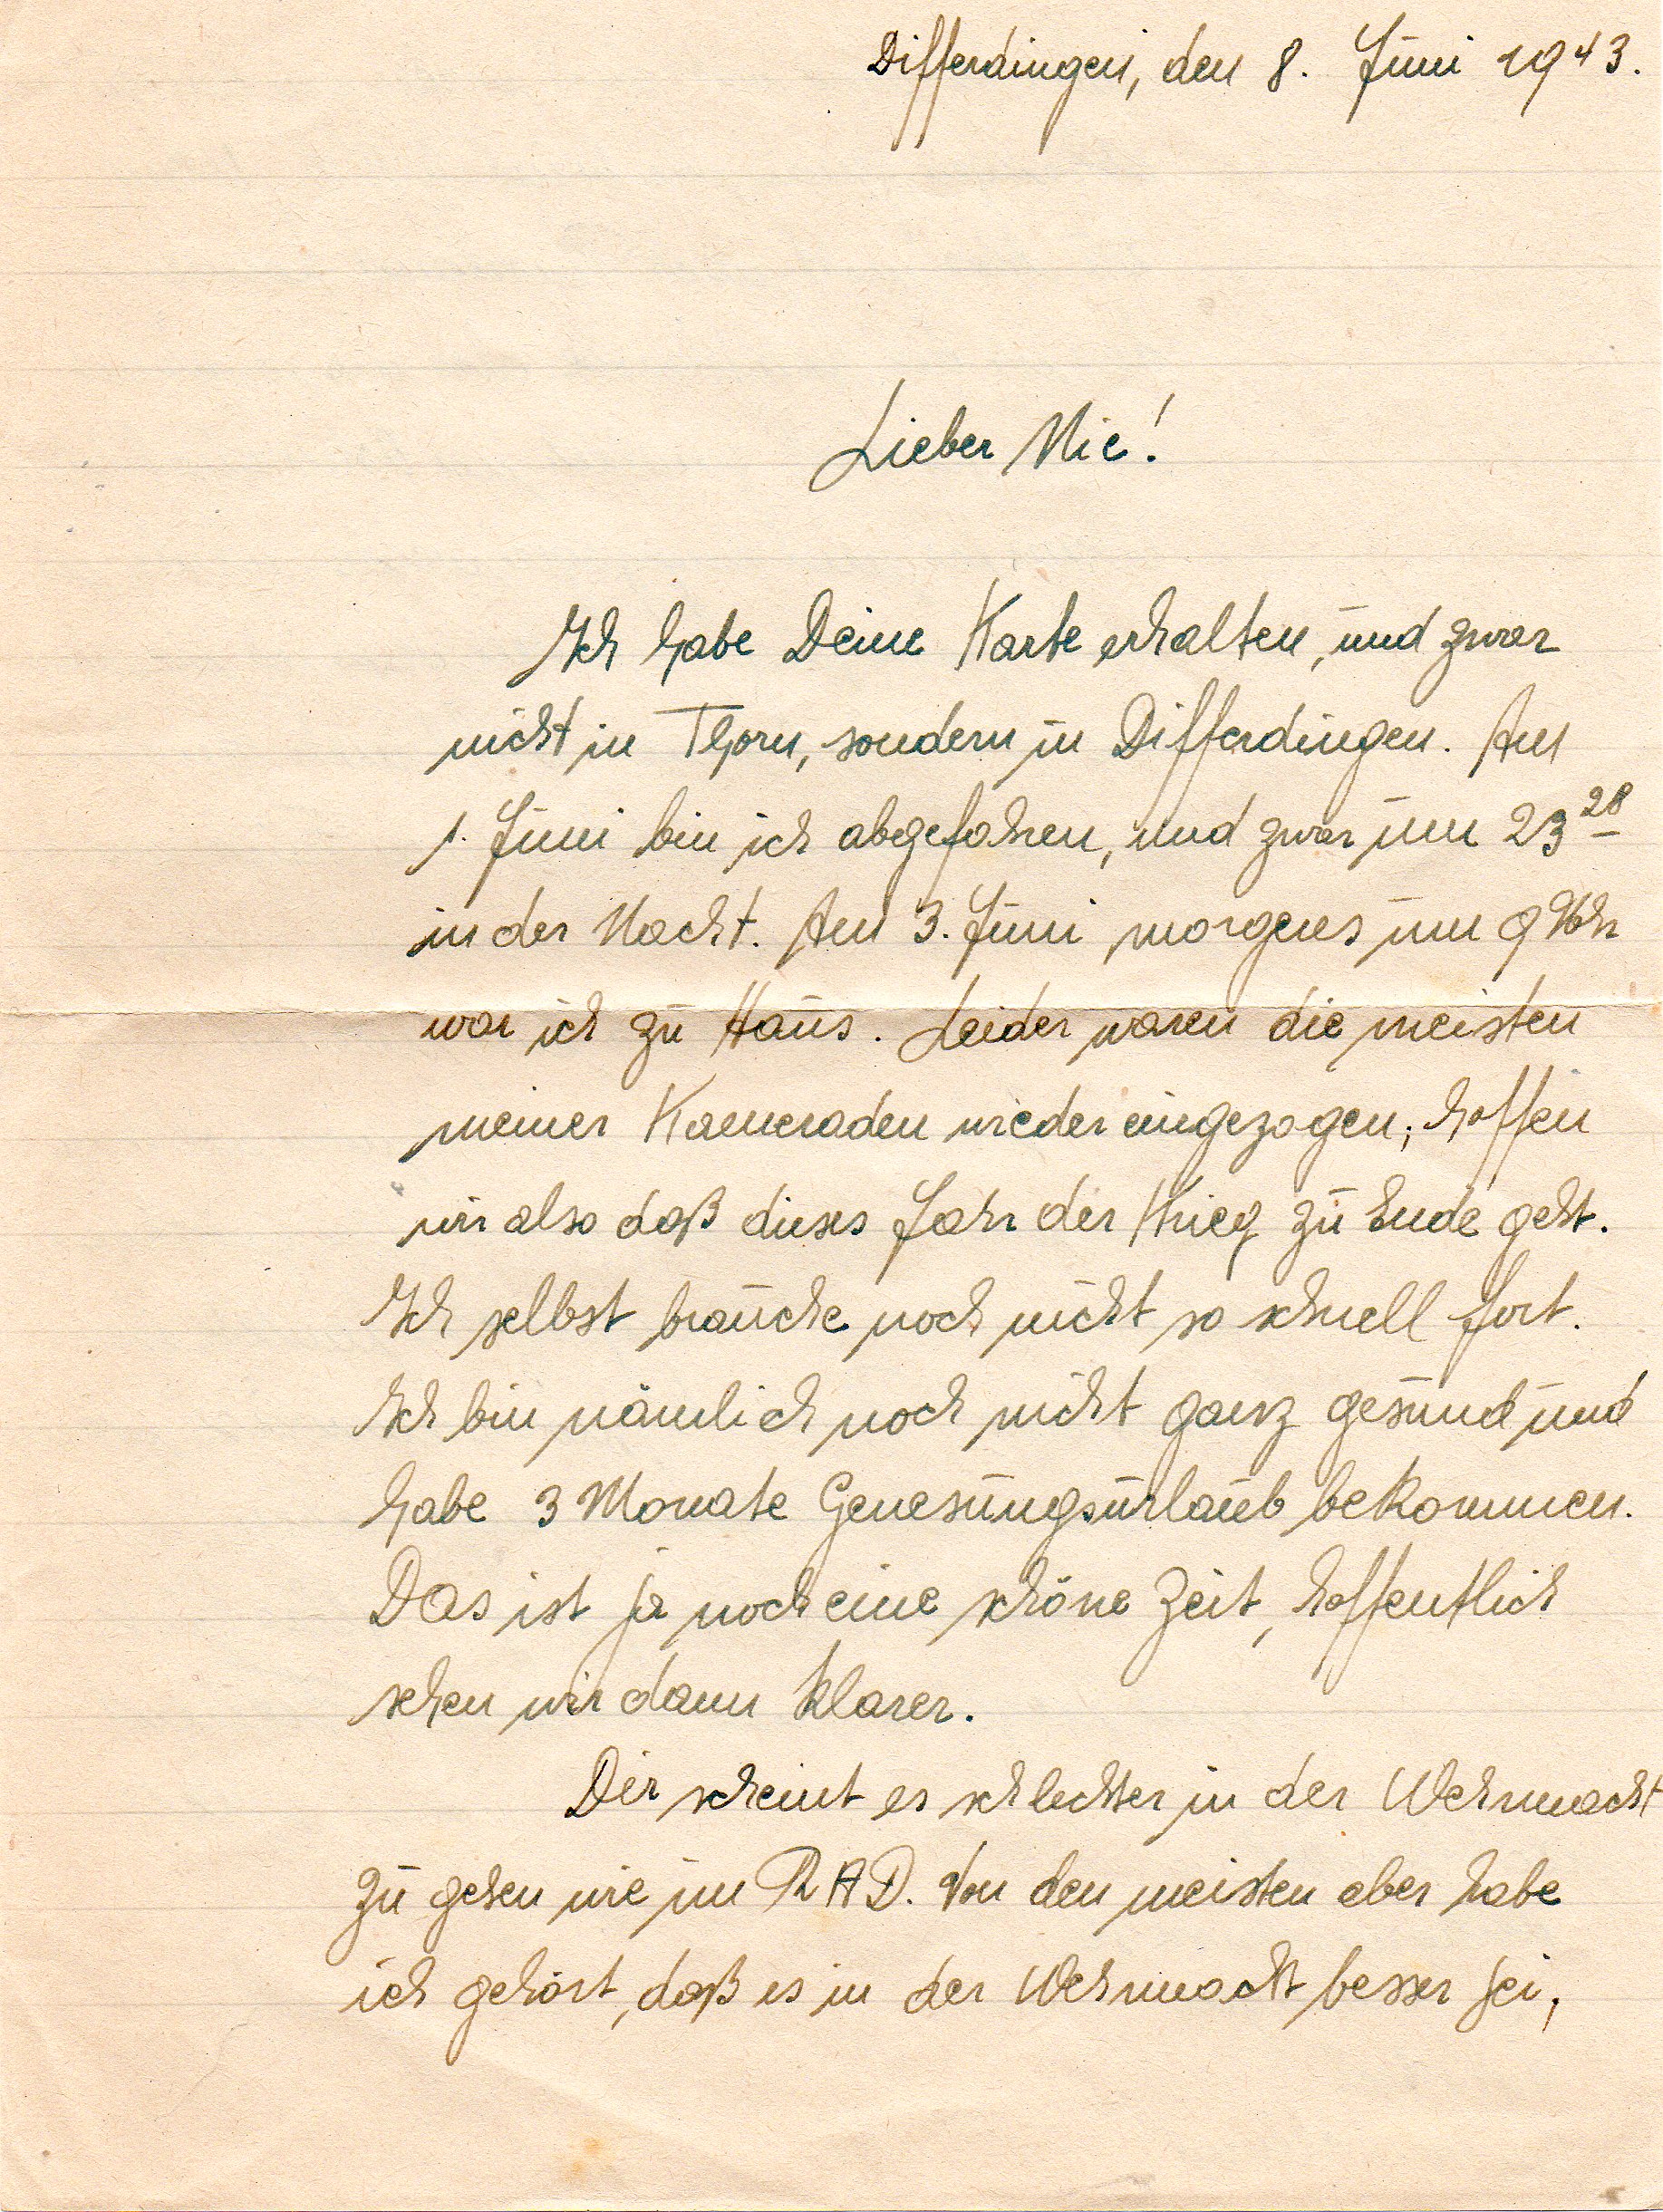 Differdingen, den 8. Juni 1943.
Lieber Nic!
Ich habe Deine Karte erhalten, und zwar
nicht in Thorn, sondern in Differdingen. Am
1. Juni bin ich abgefahren, und zwar um 23 28
in der Nacht. Am 3. Juni morgens um 9 Uhr
war ich zu Haus. Leider waren die meisten
meiner Kameraden wieder eingezogen; hoffen
wir also daß dieses Jahr der Krieg zu Ende geht.
Ich selbst brauche noch nicht so schnell fort.
Ich bin nämlich noch nicht ganz gesund und
habe 3 Monate Genesungsurlaub bekommen.
Das ist ja noch eine schöne Zeit, hoffentlich
sehen wir dann klarer.
Dir scheint es schlechter in der Wehrmacht
zu gehen wie im RAD. Von den meisten aber habe
ich gehört, daß es in der Wehrmacht besser sei,